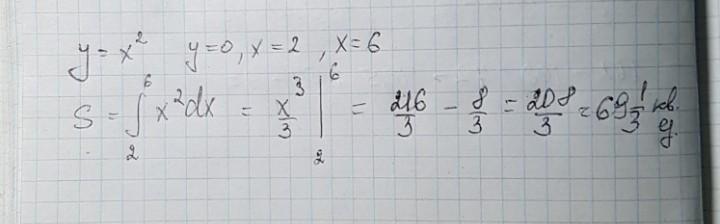 y = x² y=0, x=2, x=6
S = ∫₂⁶ x²dx = x³/3 |₂⁶ = 216/3 - 8/3 = 208/3 = 69 1/3 кв. ед.